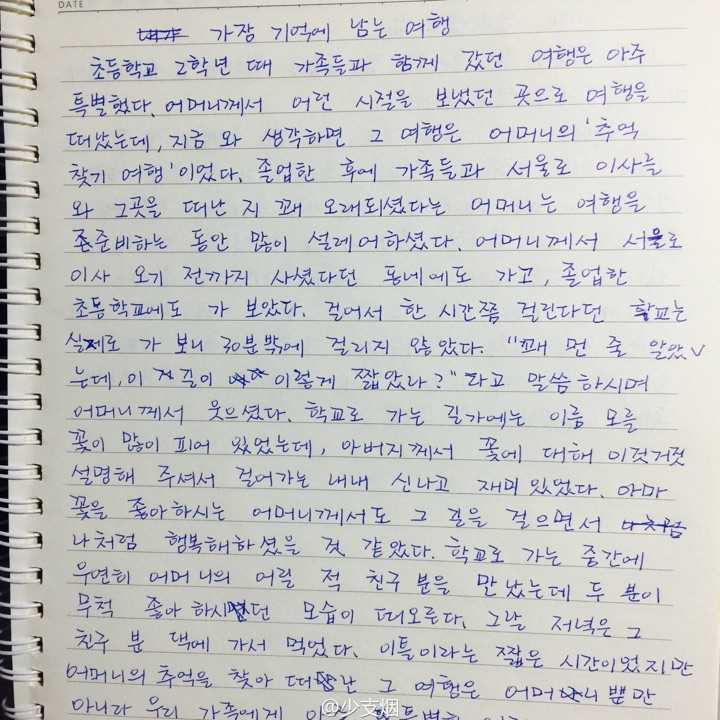 DATE
가장 기억에 남는 여행
초등학교 2학년 때 가족들과 함께 갔던 여행은 아주
특별했다. 어머니께서 어린 시절을 보냈던 곳으로 여행을
떠났는데, 지금 와 생각하면 그 여행은 어머니의 '추억
찾기 여행'이었다. 졸업한 후에 가족들과 서울로 이사를
와 그곳을 떠난 지 꽤 오래되셨다는 어머니는 여행을
준비하는 동안 많이 설레어하셨다. 어머니께서 서울로
이사 오기 전까지 사셨다던 동네에도 가고, 졸업한
초등학교에도 가 보았다. 걸어서 한 시간쯤 걸린다던 학교는
실제로 가 보니 30분밖에 걸리지 않았다. "꽤 먼 줄 알았
는데, 이 길이 이렇게 짧았나?" 라고 말씀하시며
어머니께서 웃으셨다. 학교로 가는 길가에는 이름 모를
꽃이 많이 피어 있었는데, 아버지께서 꽃에 대해 이것저것
설명해 주셔서 걸어가는 내내 신나고 재미있었다. 아마
꽃을 좋아하시는 어머니께서도 그 길을 걸으면서
나처럼 행복해하셨을 것 같았다. 학교로 가는 중간에
우연히 어머니의 어릴 적 친구 분을 만났는데 두 분이
무척 좋아하시던 모습이 떠오른다. 그날 저녁은 그
친구 분 댁에 가서 먹었다. 이틀이라는 짧은 시간이었지만
어머니의 추억을 찾아 떠난 그 여행은 어머니뿐만
아니라 우리 가족에게
@少支烟